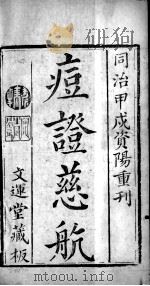 同治甲戌资陽重刊
痘證慈航
文運堂藏板
mtoou.info